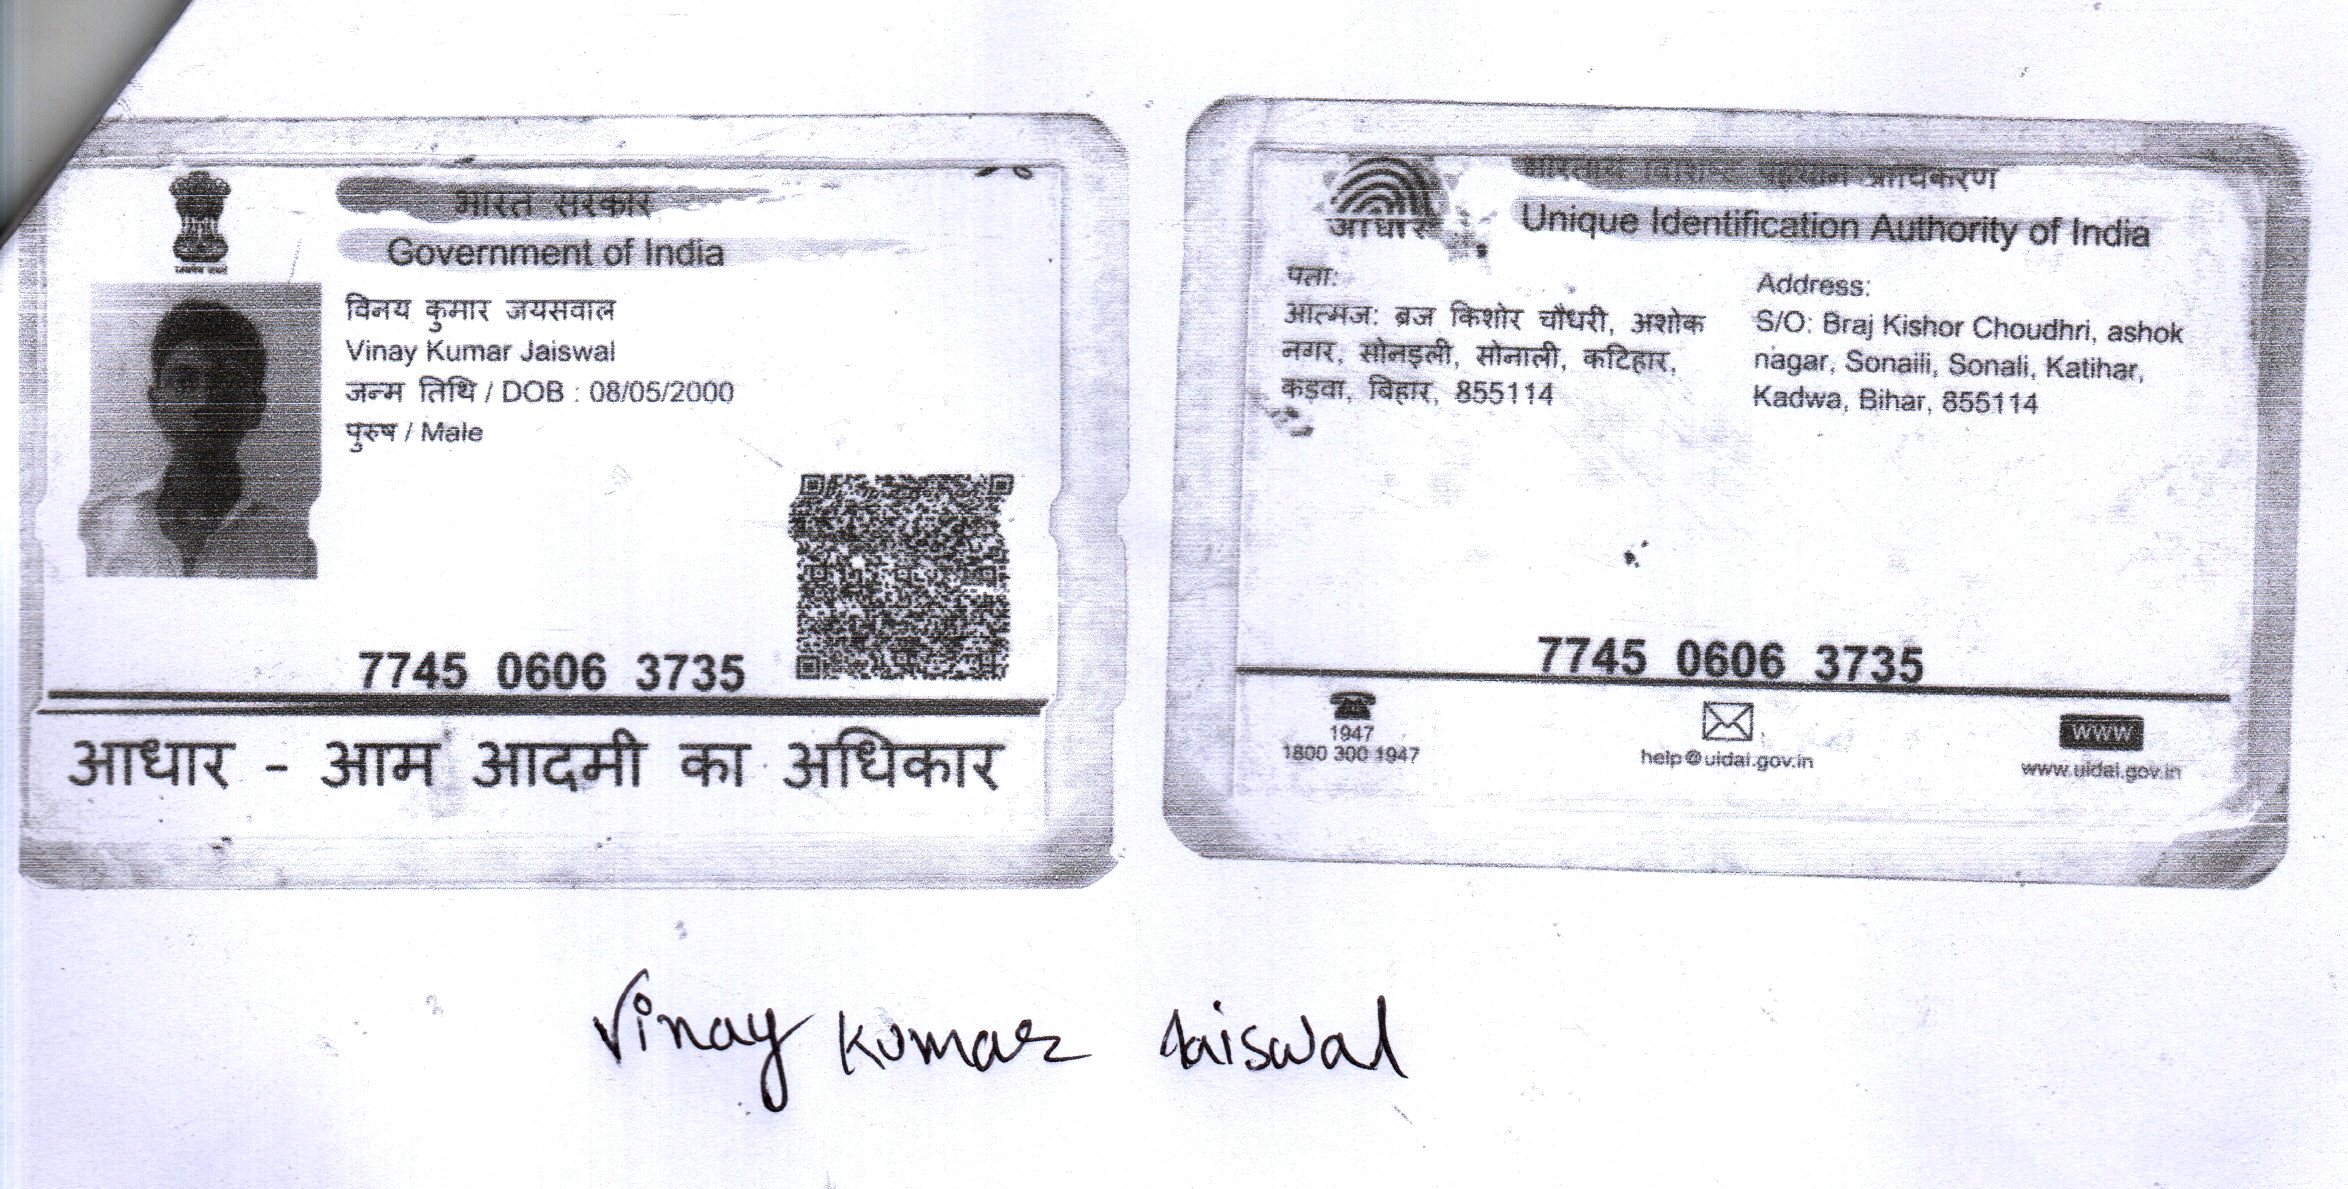 भारत सरकार
Government of India
विनय कुमार जयसवाल
Vinay Kumar Jaiswal
जन्म तिथि / DOB : 08/05/2000
पुरुष / Male
7745 0606 3735
आधार - आम आदमी का अधिकार
आधार
भारतीय विशिष्ट पहचान प्राधिकरण
Unique Identification Authority of India
पता:
आत्मज: ब्रज किशोर चौधरी, अशोक
नगर, सोनइली, सोनाली, कटिहार,
कड़वा, बिहार, 855114
Address:
S/O: Braj Kishor Choudhri, ashok
nagar, Sonaili, Sonali, Katihar,
Kadwa, Bihar, 855114
7745 0606 3735
1947
1800 300 1947
help@uidai.gov.in
www
www.uidai.gov.in
Vinay Kumar Jaiswal